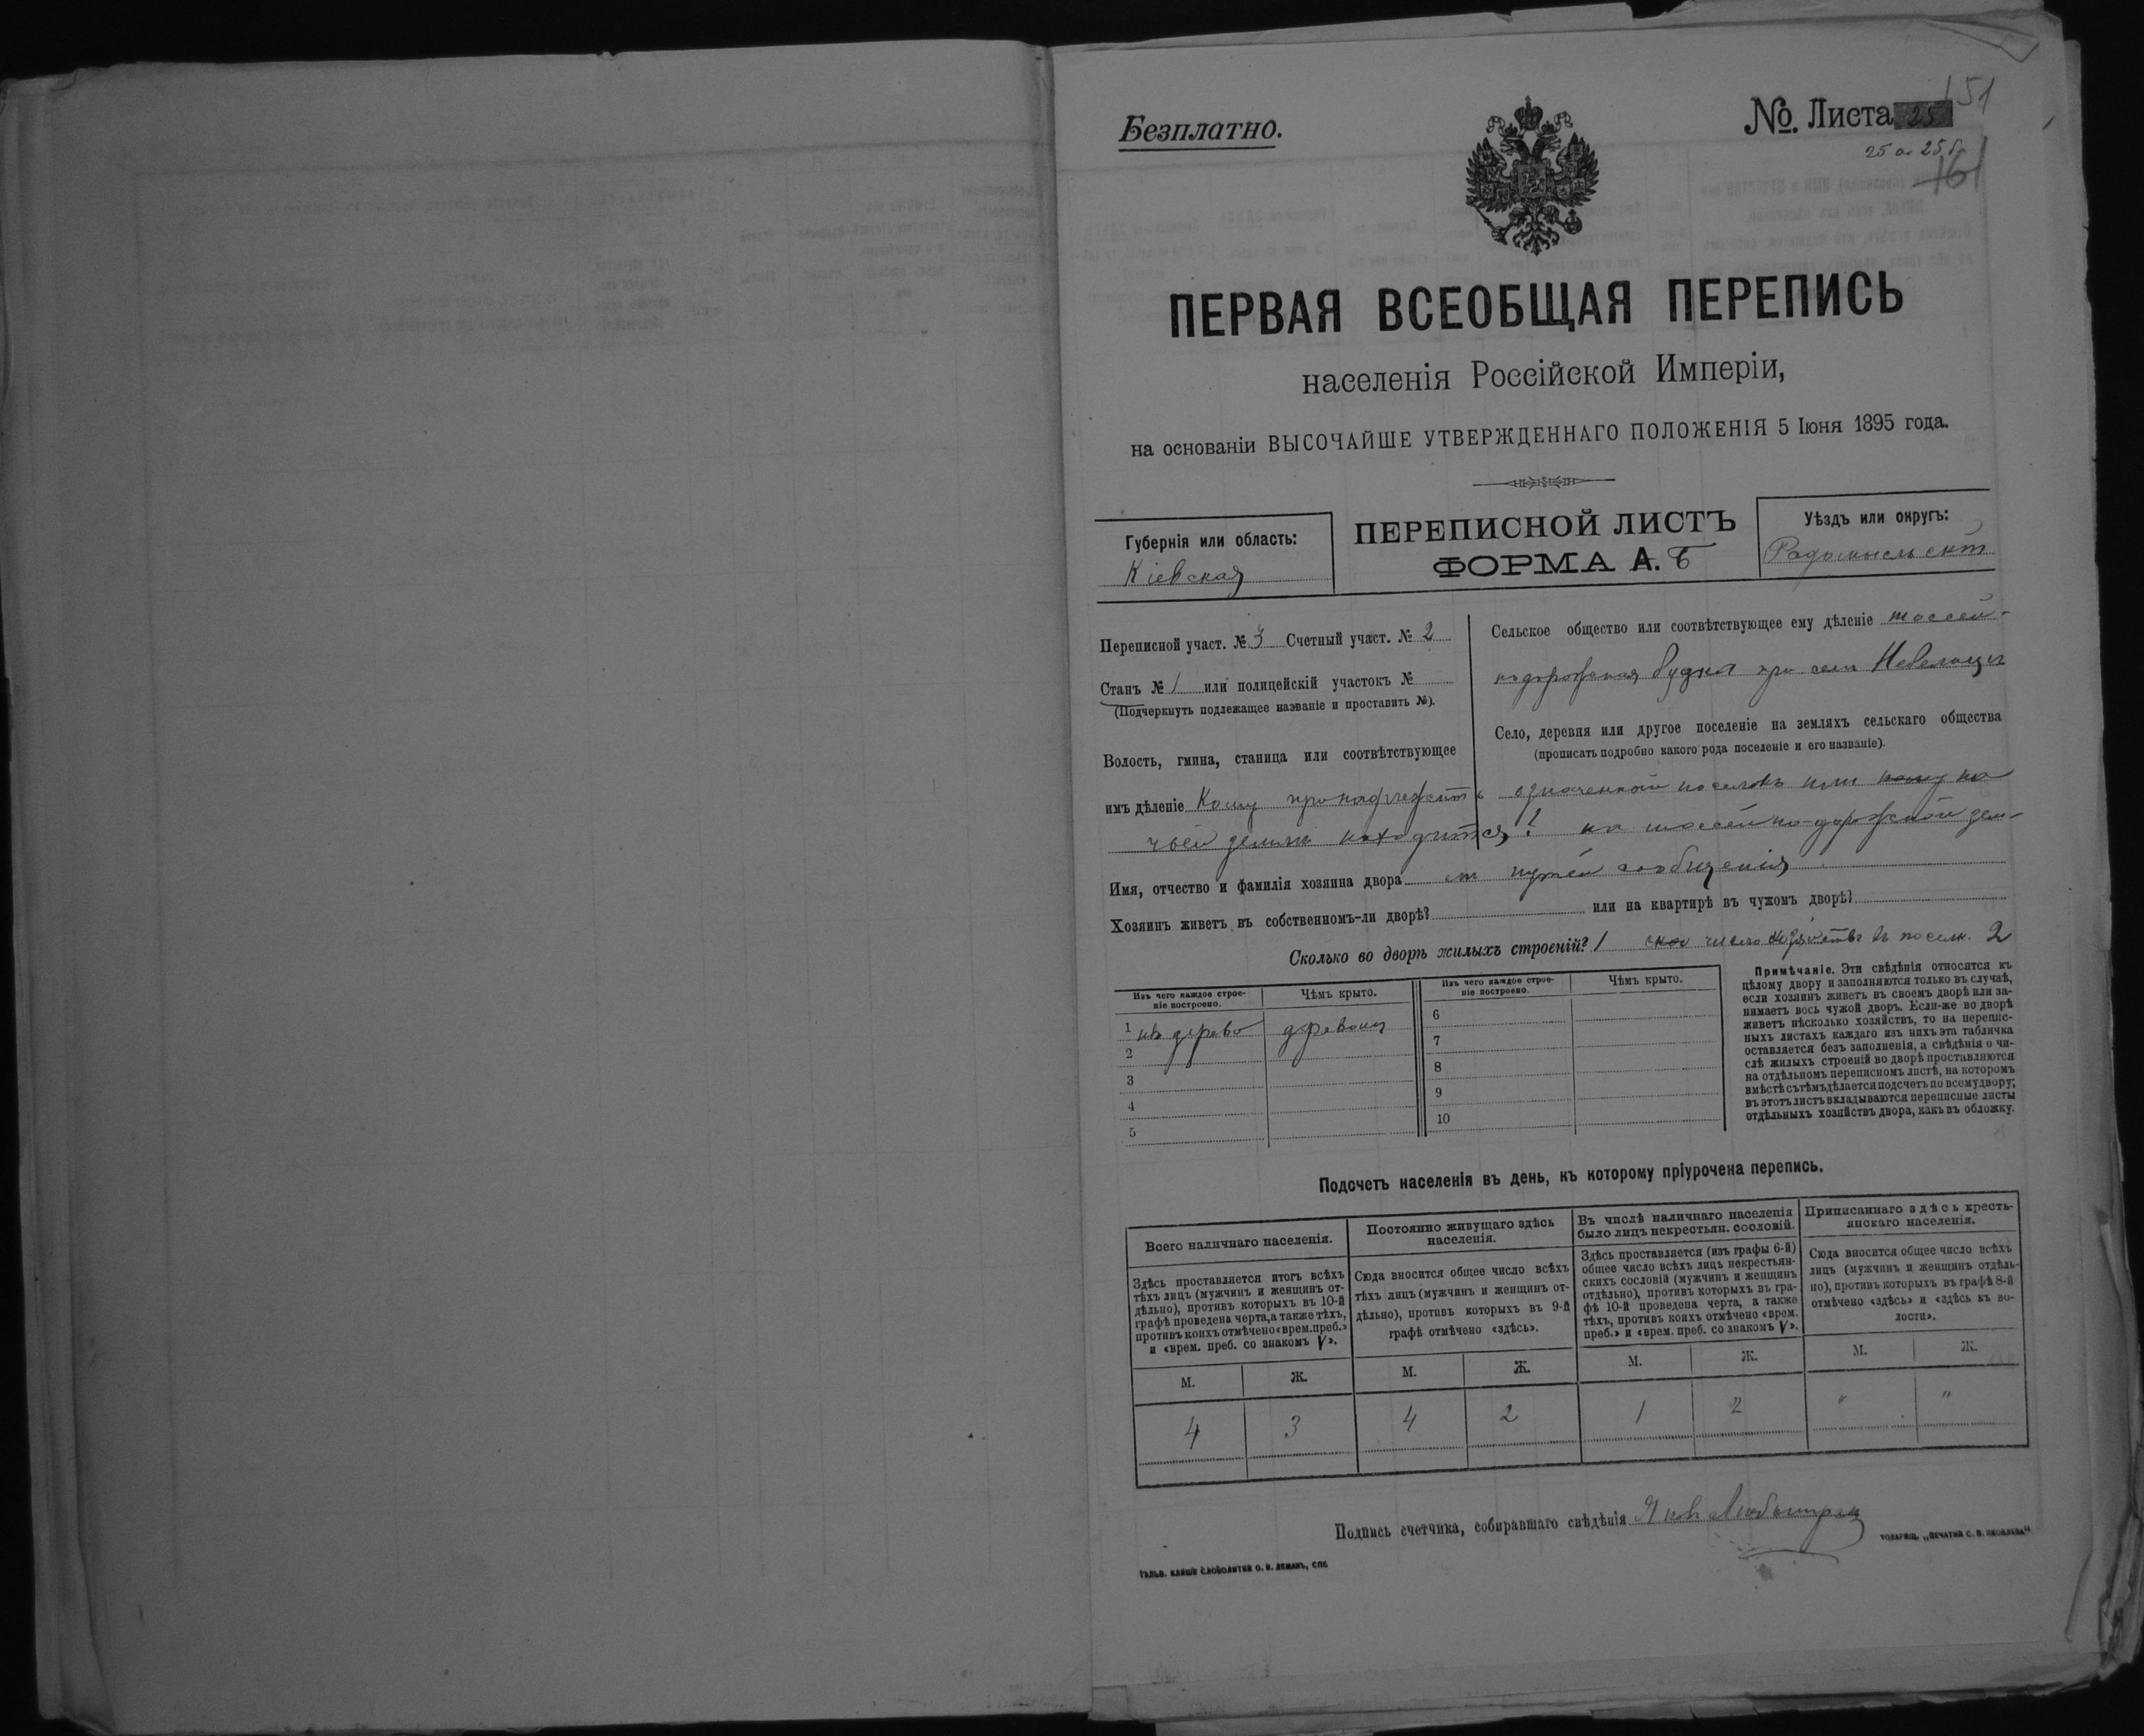 Безплатно.
№. Листа 25
151
25 а. 25 б.
161
ПЕРВАЯ ВСЕОБЩАЯ ПЕРЕПИСЬ
населенія Россійской Имперіи,
на основаніи ВЫСОЧАЙШЕ УТВЕРЖДЕННАГО ПОЛОЖЕНІЯ 5 Іюня 1895 года.
Губернія или область:
Кіевская
ПЕРЕПИСНОЙ ЛИСТЪ
ФОРМА А. Б
Уѣздъ или округъ:
Радомысльскій
Переписной участ. № 3 Счетный участ. № 2
Станъ № 1 или полицейскій участокъ №
(Подчеркнуть подлежащее названіе и проставить №).
Сельское общество или соотвѣтствующее ему дѣленіе шоссей-
нодорожная будка при селѣ
Волость, гмина, станица или соотвѣтствующее
Село, деревня или другое поселеніе на земляхъ сельскаго общества
(прописать подробно какого рода поселеніе и его названіе).
имъ дѣленіе Кому принадлежитъ означенный поселокъ или кому на
чьей землѣ находится? на шоссейно-дорожной зем-
Имя, отчество и фамилія хозяина двора путей сообщенія
Хозяинъ живетъ въ собственномъ-ли дворѣ? или на квартирѣ въ чужомъ дворѣ?
Сколько во дворѣ жилыхъ строеній? 1 число хозяйствъ въ поселк. 2
Изъ чего каждое строе-
ніе построено.
Чѣмъ крыто.
Изъ чего каждое строе-
ніе построено.
Чѣмъ крыто.
1 изъ дерева деревомъ 6
2 7
3 8
4 9
5 10
Примѣчаніе. Эти свѣдѣнія относятся къ
цѣлому двору и заполняются только въ случаѣ,
если хозяинъ живетъ въ своемъ дворѣ или за-
нимаетъ весь чужой дворъ. Если-же во дворѣ
живетъ нѣсколько хозяйствъ, то на перепис-
ныхъ листахъ каждаго изъ нихъ эта табличка
оставляется безъ заполненія, а свѣдѣнія о чи-
слѣ жилыхъ строеній во дворѣ проставляются
на отдѣльномъ переписномъ листѣ, на которомъ
вмѣстѣ съ тѣмъ дѣлается подсчетъ по всему двору;
въ этотъ листъ вкладываются переписные листы
отдѣльныхъ хозяйствъ двора, какъ въ обложку.
Подсчетъ населенія въ день, къ которому пріурочена перепись.
Всего наличнаго населенія.
Здѣсь проставляется итогъ всѣхъ
тѣхъ лицъ (мужчинъ и женщинъ от-
дѣльно), противъ которыхъ въ 10-й
графѣ проведена черта, а также тѣхъ,
противъ коихъ отмѣчено «врем. преб.»
и «врем. преб. со знакомъ V».
Постоянно живущаго здѣсь
населенія.
Сюда вносится общее число всѣхъ
тѣхъ лицъ (мужчинъ и женщинъ от-
дѣльно), противъ которыхъ въ 9-й
графѣ отмѣчено «здѣсь».
Въ числѣ наличнаго населенія
было лицъ некрестьян. сословій.
Здѣсь проставляется (изъ графы 6-й)
общее число всѣхъ лицъ некрестьян-
скихъ сословій (мужчинъ и женщинъ
отдѣльно), противъ которыхъ въ гра-
фѣ 10-й проведена черта, а также
тѣхъ, противъ коихъ отмѣчено «врем.
преб.» и «врем. преб. со знакомъ V».
Приписаннаго здѣсь кресть-
янскаго населенія.
Сюда вносится общее число всѣхъ
лицъ (мужчинъ и женщинъ отдѣль-
но), противъ которыхъ въ графѣ 8-й
отмѣчено «здѣсь» и «здѣсь къ во-
лости».
М. Ж. М. Ж. М. Ж. М. Ж.
4 3 4 2 1 2 " "
Подпись счетчика, собиравшаго свѣдѣнія
ГАЛЬВ. КЛИШЕ СЛОВОЛИТНИ О. И. ЛЕМАНЪ, СПб.
ТОВАРИЩ. „ПЕЧАТНЯ С. П. ЯКОВЛЕВА“